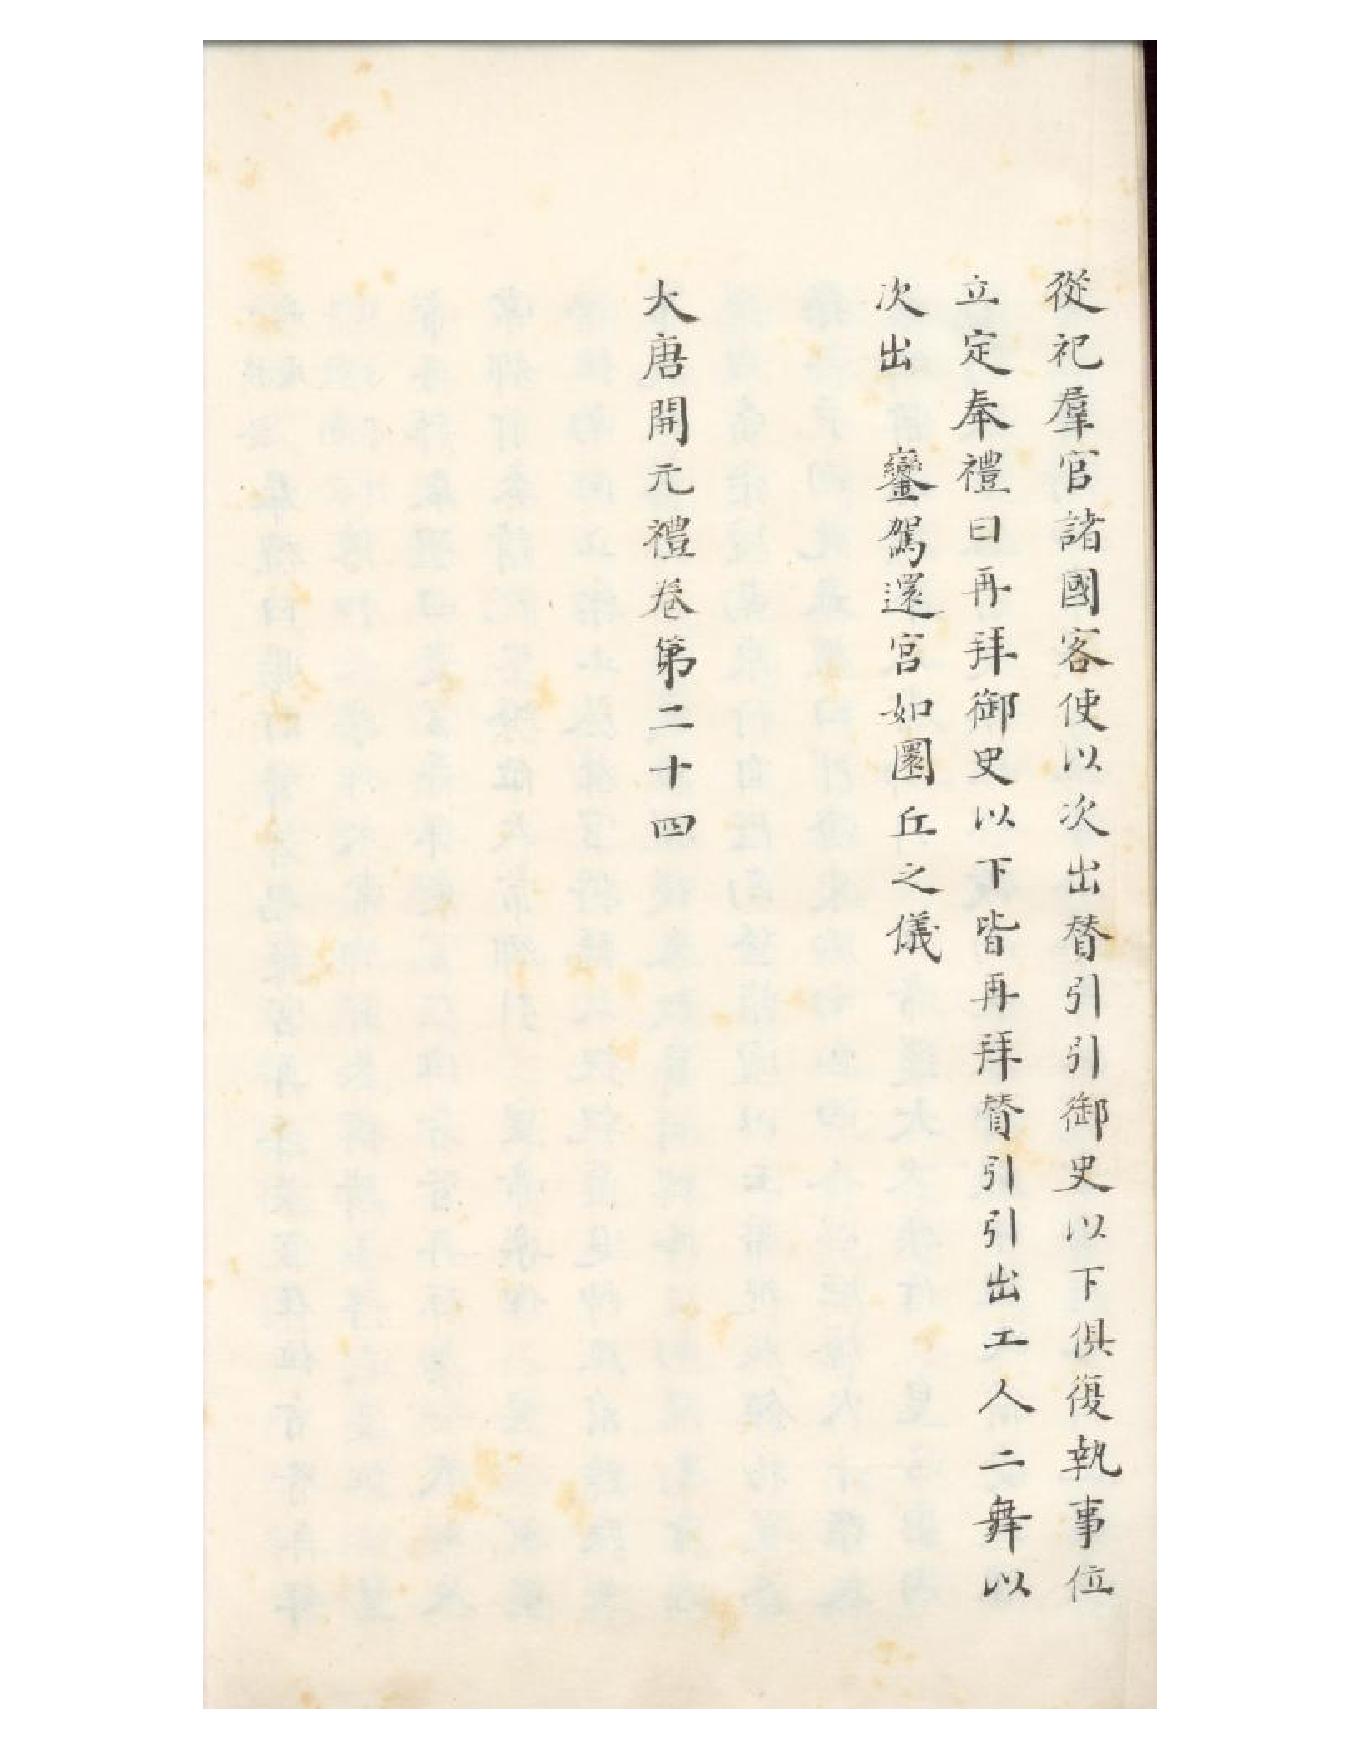 從祀羣官諸國客使以次出替引引御史以下俱復執事位
立定奉禮曰再拜御史以下皆再拜賛引引出工人二舞以
次出　鑾駕還宮如圜丘之儀
大唐開元禮卷第二十四